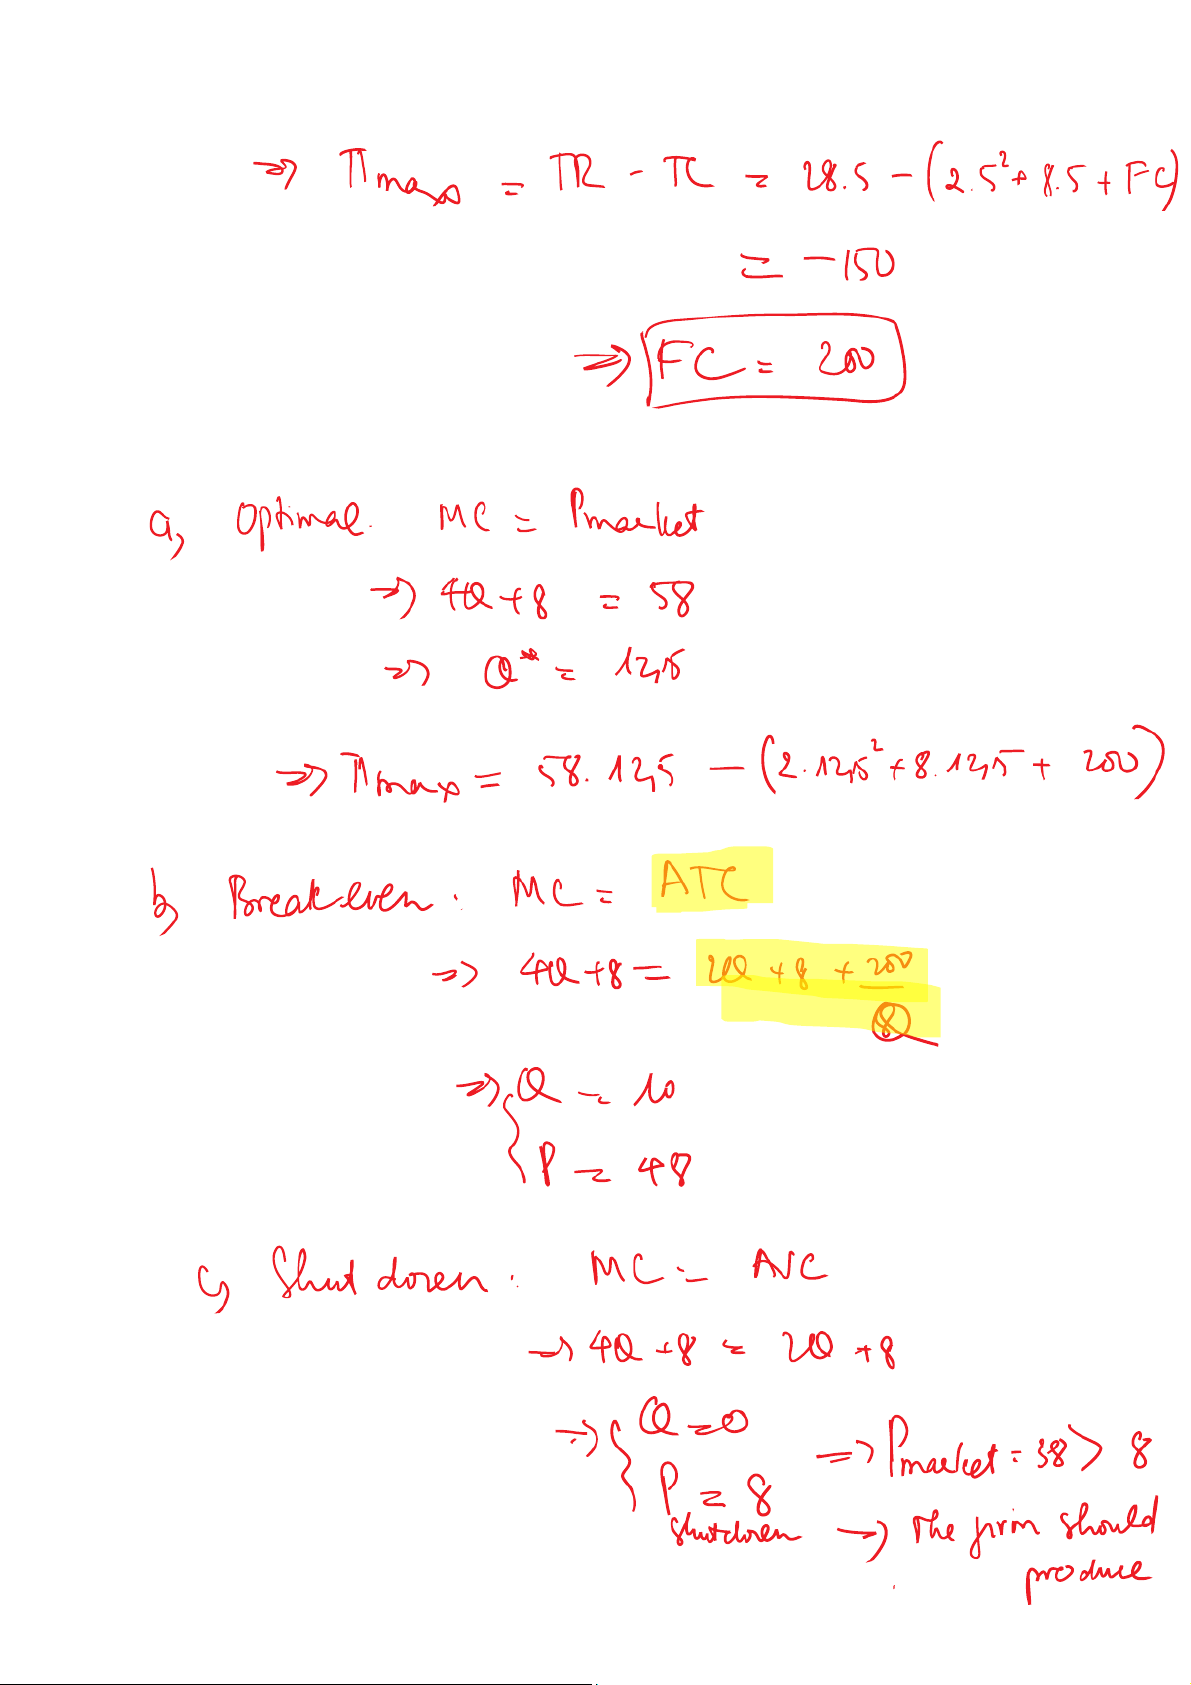 => Πmax = TR - TC = 28.5 - (2.5² + 8.5 + FC)
= -150
=> FC = 200
a, Optimal. MC = Pmarket
=> 4Q + 8 = 58
=> Q* = 12,5
=> Πmax = 58.12,5 - (2.12,5² + 8.12,5 + 200)
b, Break-even: MC = ATC
=> 4Q + 8 = 2Q + 8 + 200/Q
=> { Q = 10
P = 48
c, Shut down: MC = AVC
-> 4Q + 8 = 2Q + 8
=> { Q = 0
P shutdown = 8 => Pmarket = 38 > 8
-> The firm should
produce